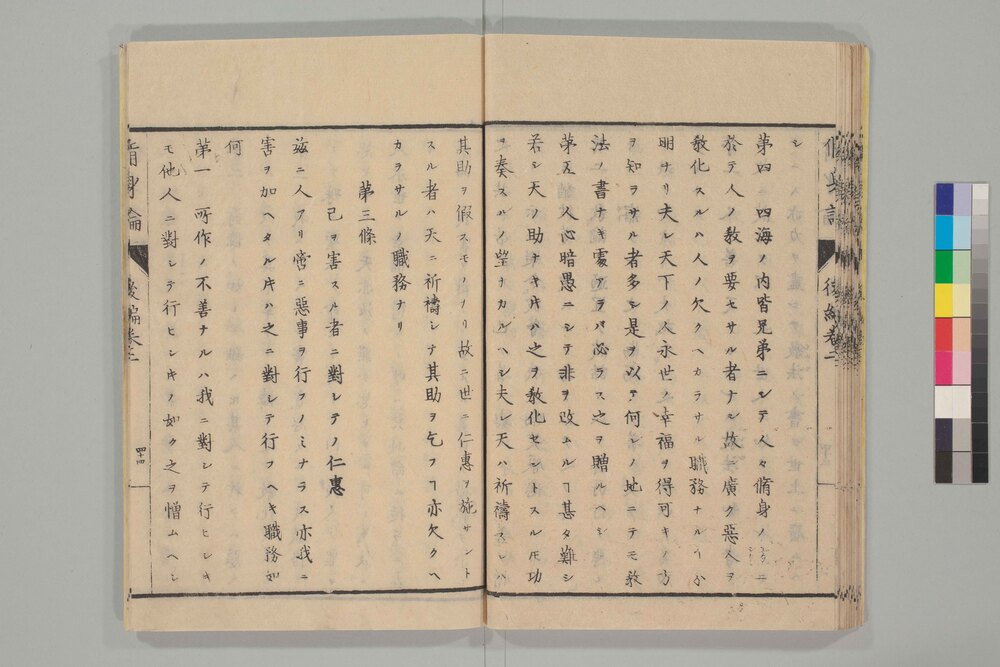 第四 四海ノ内皆兄弟ニシテ人々脩身ノ
於テ人ノ教ヲ要セサル者ナシ故ニ廣ク惡人ヲ
教化スルハ人ノ欠クヘカラサル職務ナルヿ分
明ナリ夫レ天下ノ人永世ノ幸福ヲ得可キノ方
ヲ知ヲサル者多シ是ヲ以テ何レノ地ニテモ教
法ノ書ナキ處アラバ必ラス之ヲ贈ルヘシ
第五 人心暗愚ニシテ非ヲ改ムルヿ甚タ難シ
若シ天ノ助ナキ片ハ之ヲ教化セントスル𪜈功
ヲ奏スルノ望ナカルヘシ夫レ天ハ祈禱スレハ
其助ヲ假スモノナリ故ニ世ニ仁惠ヲ施サント
スル者ハ天ニ祈禱シテ其助ヲ乞フヿ亦欠クヘ
カラサルノ職務ナリ
第三條
己ヲ害スル者ニ對シテノ仁惠
玆ニ人アリ啻ニ惡事ヲ行フノミナラス亦我ニ
害ヲ加ヘタル片ハ之ニ對シテ行フヘキ職務如
何
第一 所作ノ不善ナルハ我ニ對シテ行ヒシモ
モ他人ニ對シテ行ヒシモノ如ク之ヲ憎ムヘシ
脩身論 後編卷二 四十四